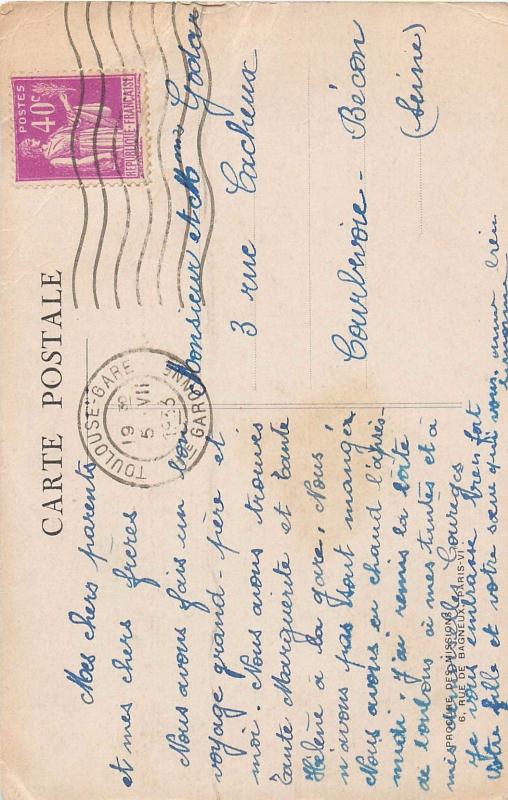 CARTE POSTALE
POSTES
40c
REPUBLIQUE FRANÇAISE
TOULOUSE-GARE
19 30
5 VII
1933
Hte GARONNE
Mes chers parents
et mes chers frères
Nous avons fais un bon
voyage grand-père et
moi. Nous avons trouvés
tante Marguerite et tante
Hélène à la gare. Nous
n'avons pas tout mangé
Nous avons eu chaud l'après-
midi. J'ai remis la boîte
de bonbons à mes tantes et à
mes
Je vous embrasse bien fort
Votre fille et votre sœur qui vous aime bien
Monsieur et Mme Godar
3 rue Cacheux
Courbevoie - Bécon
(Seine)
PROCURE DES MISSIONS
6, RUE DE BAGNEUX, PARIS-VI